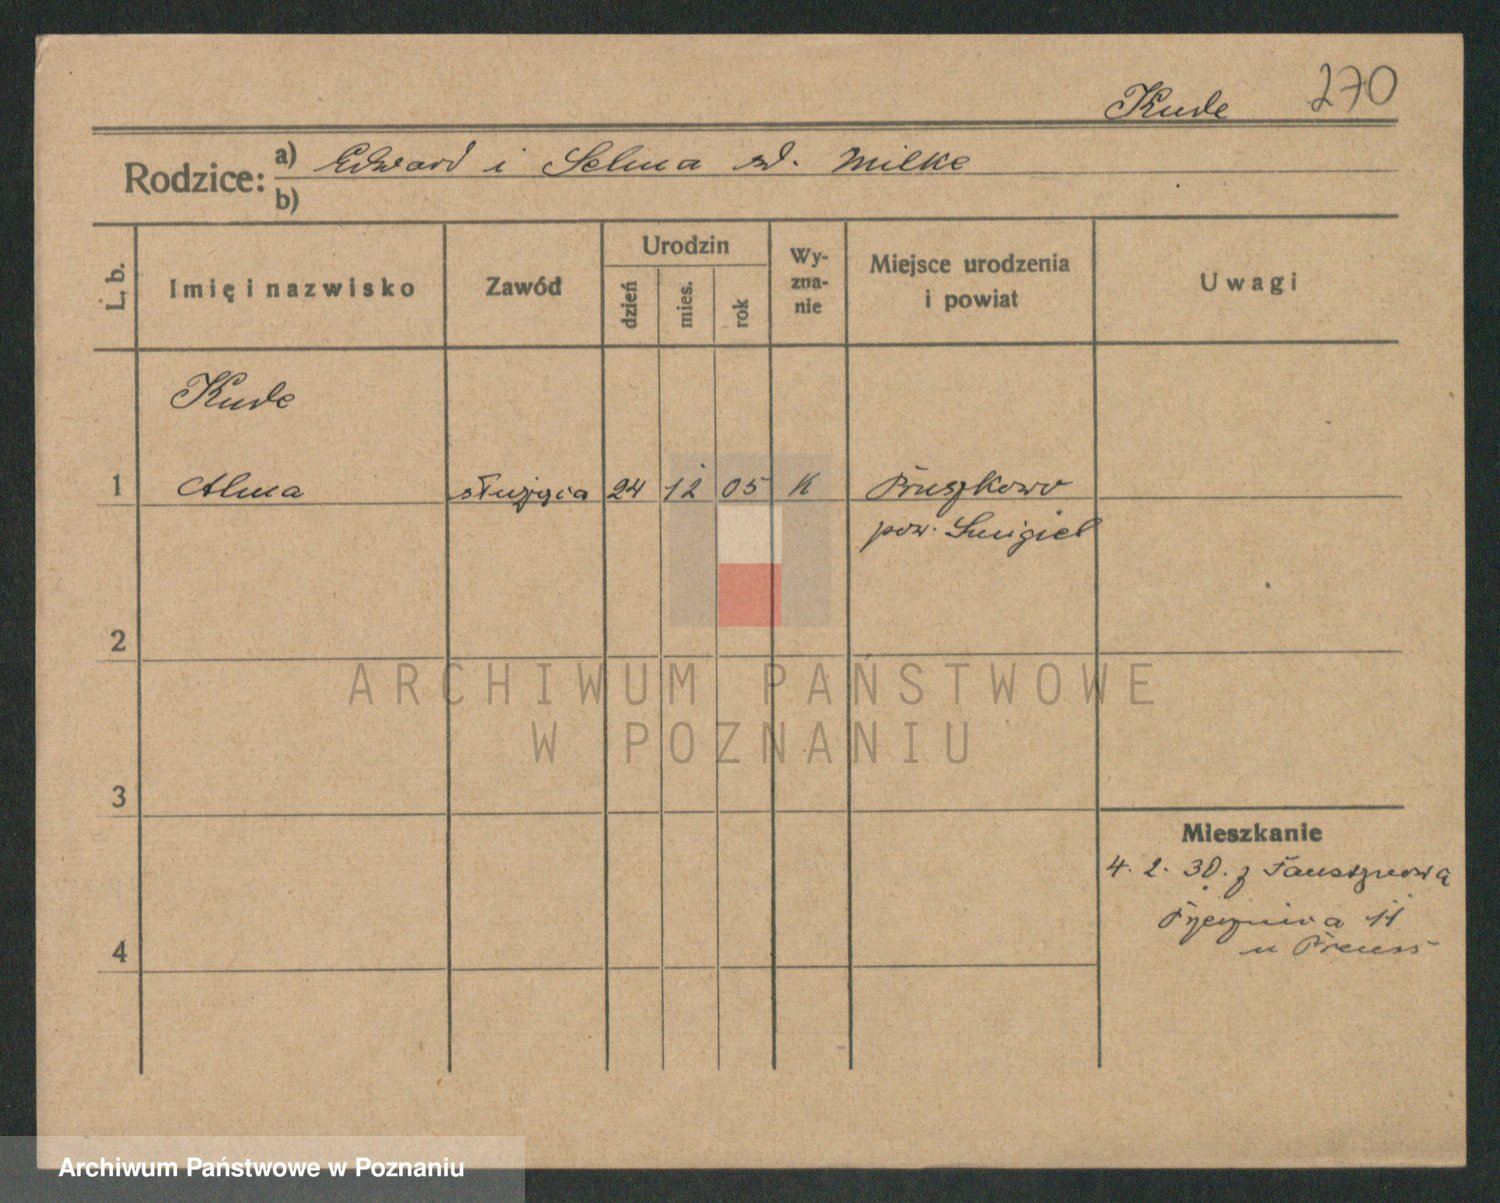 Kude 270
Rodzice: a) Edward i Selma zd. Milke
b)
L. b.
Imię i nazwisko
Zawód
Urodzin
dzień
mies.
rok
Wy-
zna-
nie
Miejsce urodzenia
i powiat
Uwagi
Kude
1 Alma służąca 24 12 05 K Pruszkowo
pow. Śmigiel
2
3
4
Mieszkanie
4. 2. 30. z
11
u Preuss
ARCHIWUM PAŃSTWOWE
W POZNANIU
Archiwum Państwowe w Poznaniu